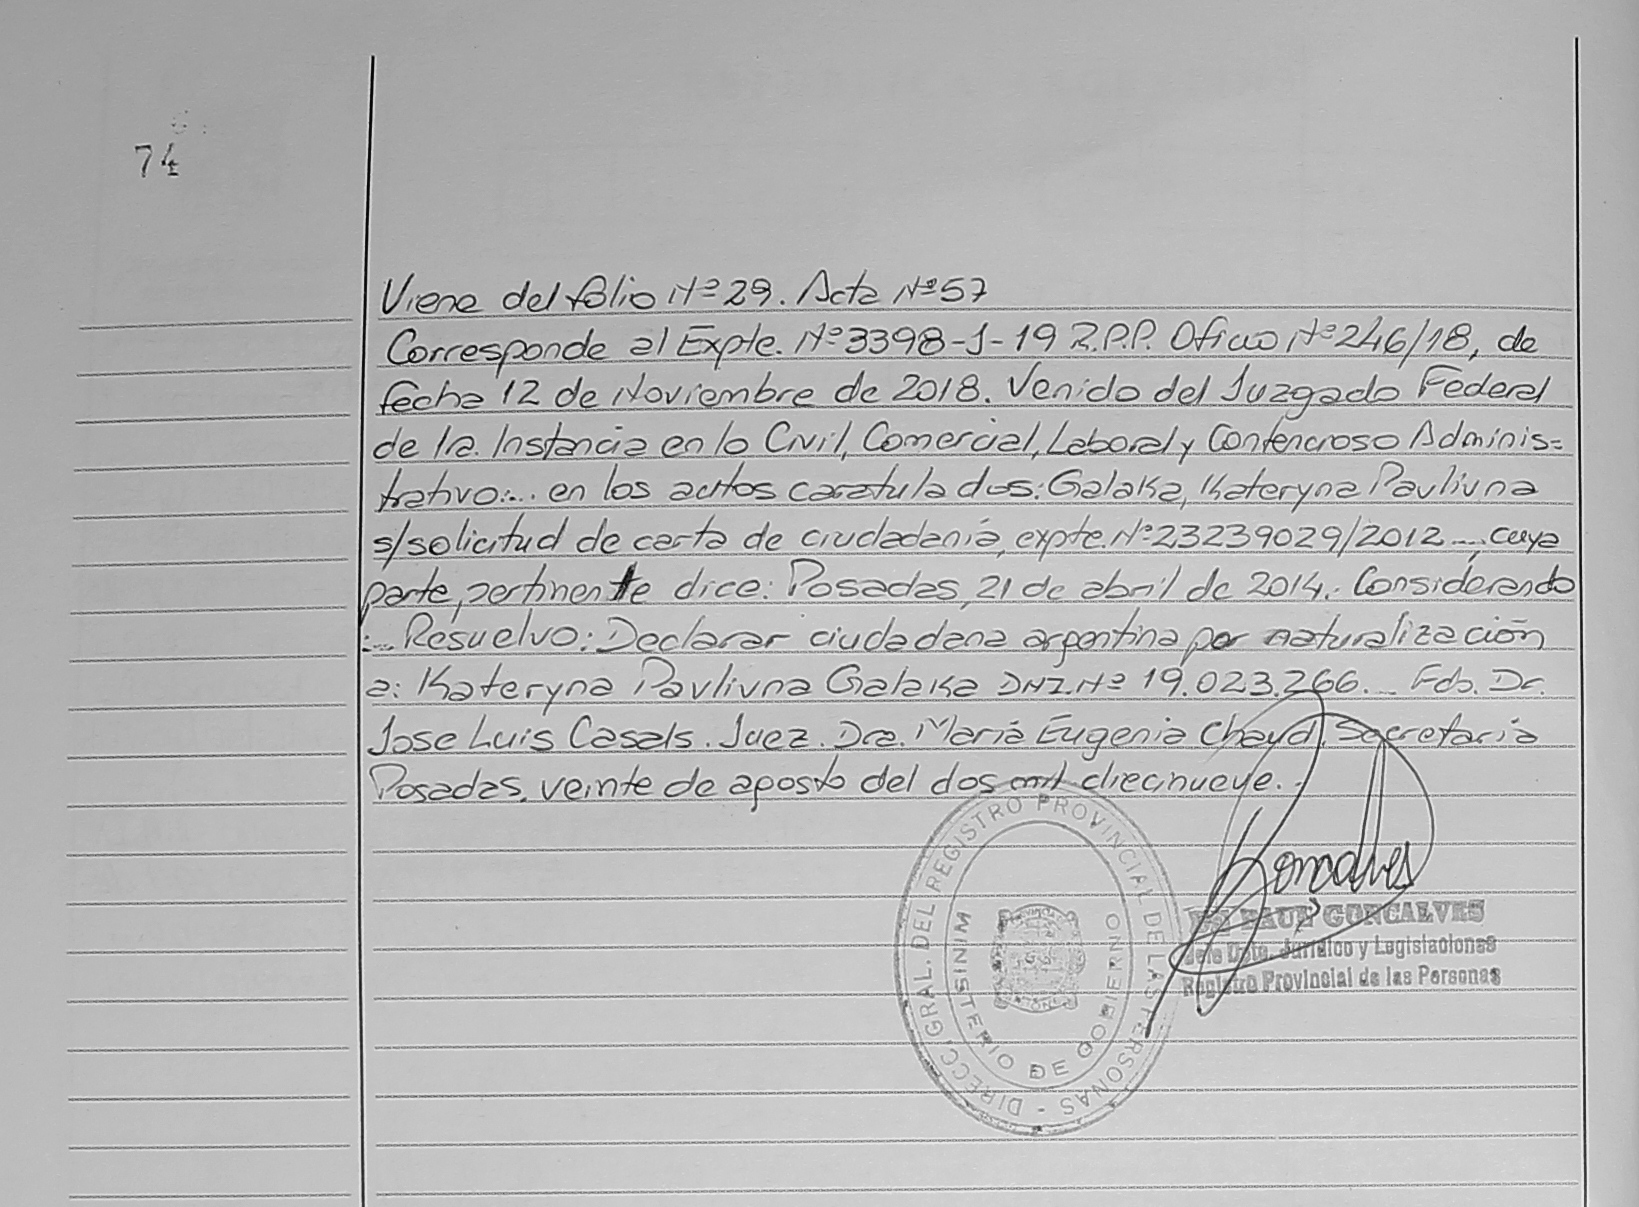 74
Viene del folio Nº 29. Acta Nº 57
Corresponde al Expte. Nº 3398-J-19 R.P.P. Oficio Nº 246/18, de
fecha 12 de Noviembre de 2018. Venido del Juzgado Federal
de 1ra. Instancia en lo Civil, Comercial, Laboral y Contencioso Adminis=
trativo:... en los autos caratulados: Galaka, Kateryna Pavlivna
s/solicitud de carta de ciudadanía, expte. Nº 23239029/2012 ..., cuya
parte, pertinente dice: Posadas, 21 de abril de 2014.: Considerando
:... Resuelvo: Declarar ciudadana argentina por naturalización
a: Kateryna Pavlivna Galaka DNI. Nº 19.023.266.... Fdo. Dr.
Jose Luis Casals. Juez. Dra. María Eugenia Chayd. Secretaria
Posadas, veinte de agosto del dos mil diecinueve..
DIRECC. GRAL. DEL REGISTRO PROVINCIAL DE LAS PERSONAS -
MINISTERIO DE GOBIERNO
Goncalves
GONCALVES
Jefe Dpto. Jurídico y Legislaciones
Registro Provincial de las Personas